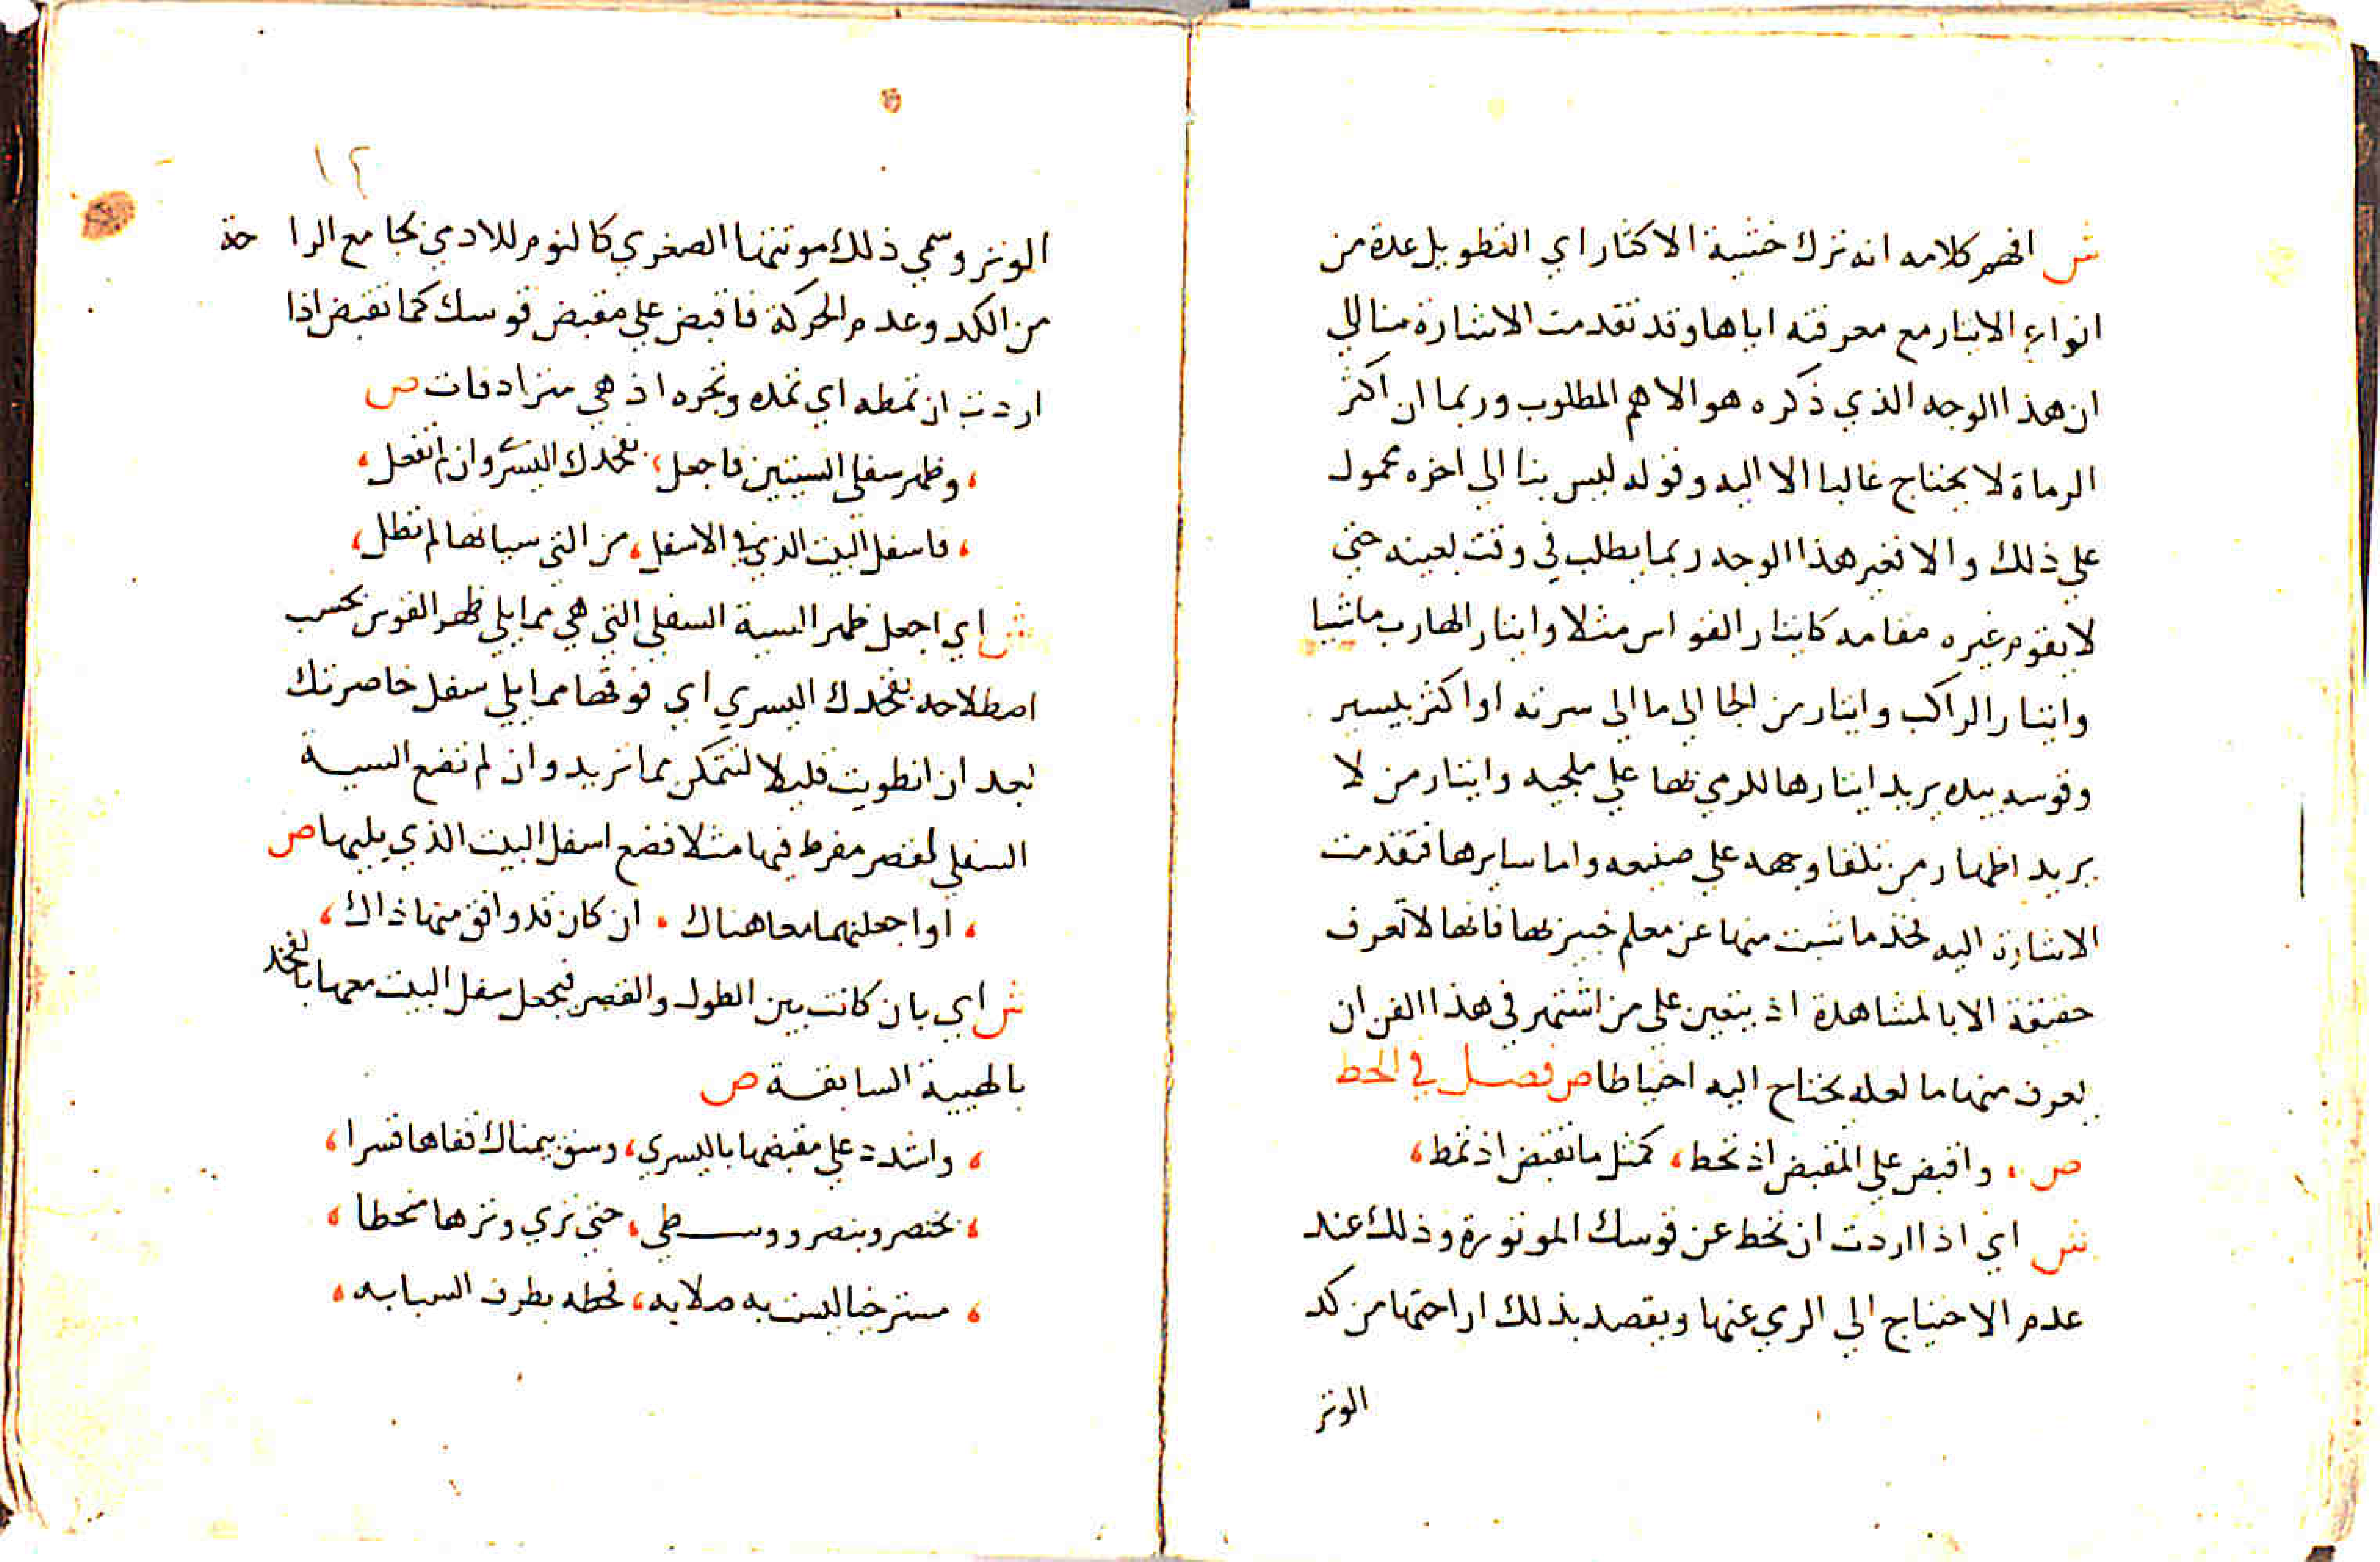 ش افهم كلامه انه ترك خشية الاكثار اي التطويل عدة من
انواع الايتار مع معرفته اياها وقد تقدمت الاشارة منا الي
ان هذا الوجه الذي ذكره هو الاهم المطلوب وربما ان اكثر
الرماة لا يحتاج غالبا الا اليه وقوله ليس بنا الي اخره محمول
علي ذلك والا فغير هذا الوجه ربما يطلب في وقت بعينه حتي
لا يقوم غيره مقامه كايتار القواس مثلا وايتار الهارب ماشيا
وايتار الراكب وايتار من الجا الي ما الي سرته او اكثر بيسير
وقوسه بيده يريد ايتارها للرمي بها علي ملجيه وايتار من لا
يريد اظهار من تلقا وجهه علي صنيعه واما سايرها فتقدمت
الاشارة اليه فخذ ما شيت منها عن معلم خبير بها فانها لا تعرف
حقيقة الا بالمشاهدة اذ يتعين علي من اشتهر في هذا الفن ان
يعرف منها ما لعله يحتاج اليه احتياطا ص فصل في الحط
ص ، واقبض علي المقبض اذ تحط ، كمثل ما تقبض اذ تمط ،
ش اي اذا اردت ان تحط عن قوسك الموتورة وذلك عند
عدم الاحتياج الي الرمي عنها ويقصد بذلك اراحتها من كد
الوتر
١٢
الوتر وسمي ذلك موتتها الصغري كالنوم للادمي بجامع الراحة
من الكد وعدم الحركة فاقبض علي مقبض قوسك كما تقبض اذا
اردت ان تمطه اي تمده وتجره اذ هي مترادفات ص
، وظهر سفلي السيتين فاجعل ، بفخدك اليسرى وان لم تفعل ،
، فاسفل البيت الذي في الاسفل ، من التي سياتها لم تطل ،
ش اي اجعل ظهر السية السفلي التي هي مما يلي ظهر القوس بحسب
اصطلاحه بفخدك اليسري اي فوقها مما يلي سفل خاصرتك
بعد ان انطويت قليلا لتتمكن مما تريد وان لم تضع السية
السفلي لقصر مفرط فيها مثلا فضع اسفل البيت الذي يليها ص
، او اجعلنهما معا هناك ، ان كان قد وافق منها ذاك ،
ش اي بان كانت بين الطول والقصر فيجعل سفل البيت معها بالفخد
بالهيية السابقة ص
، واشدد علي مقبضها باليسري ، وسق بيمناك قفاها قسرا ،
، بخنصر وبنصر ووسطي ، حتي تري وترها منحطا ،
، مسترخيا ليست به صلابه ، فحطه بطرف السبابه ،